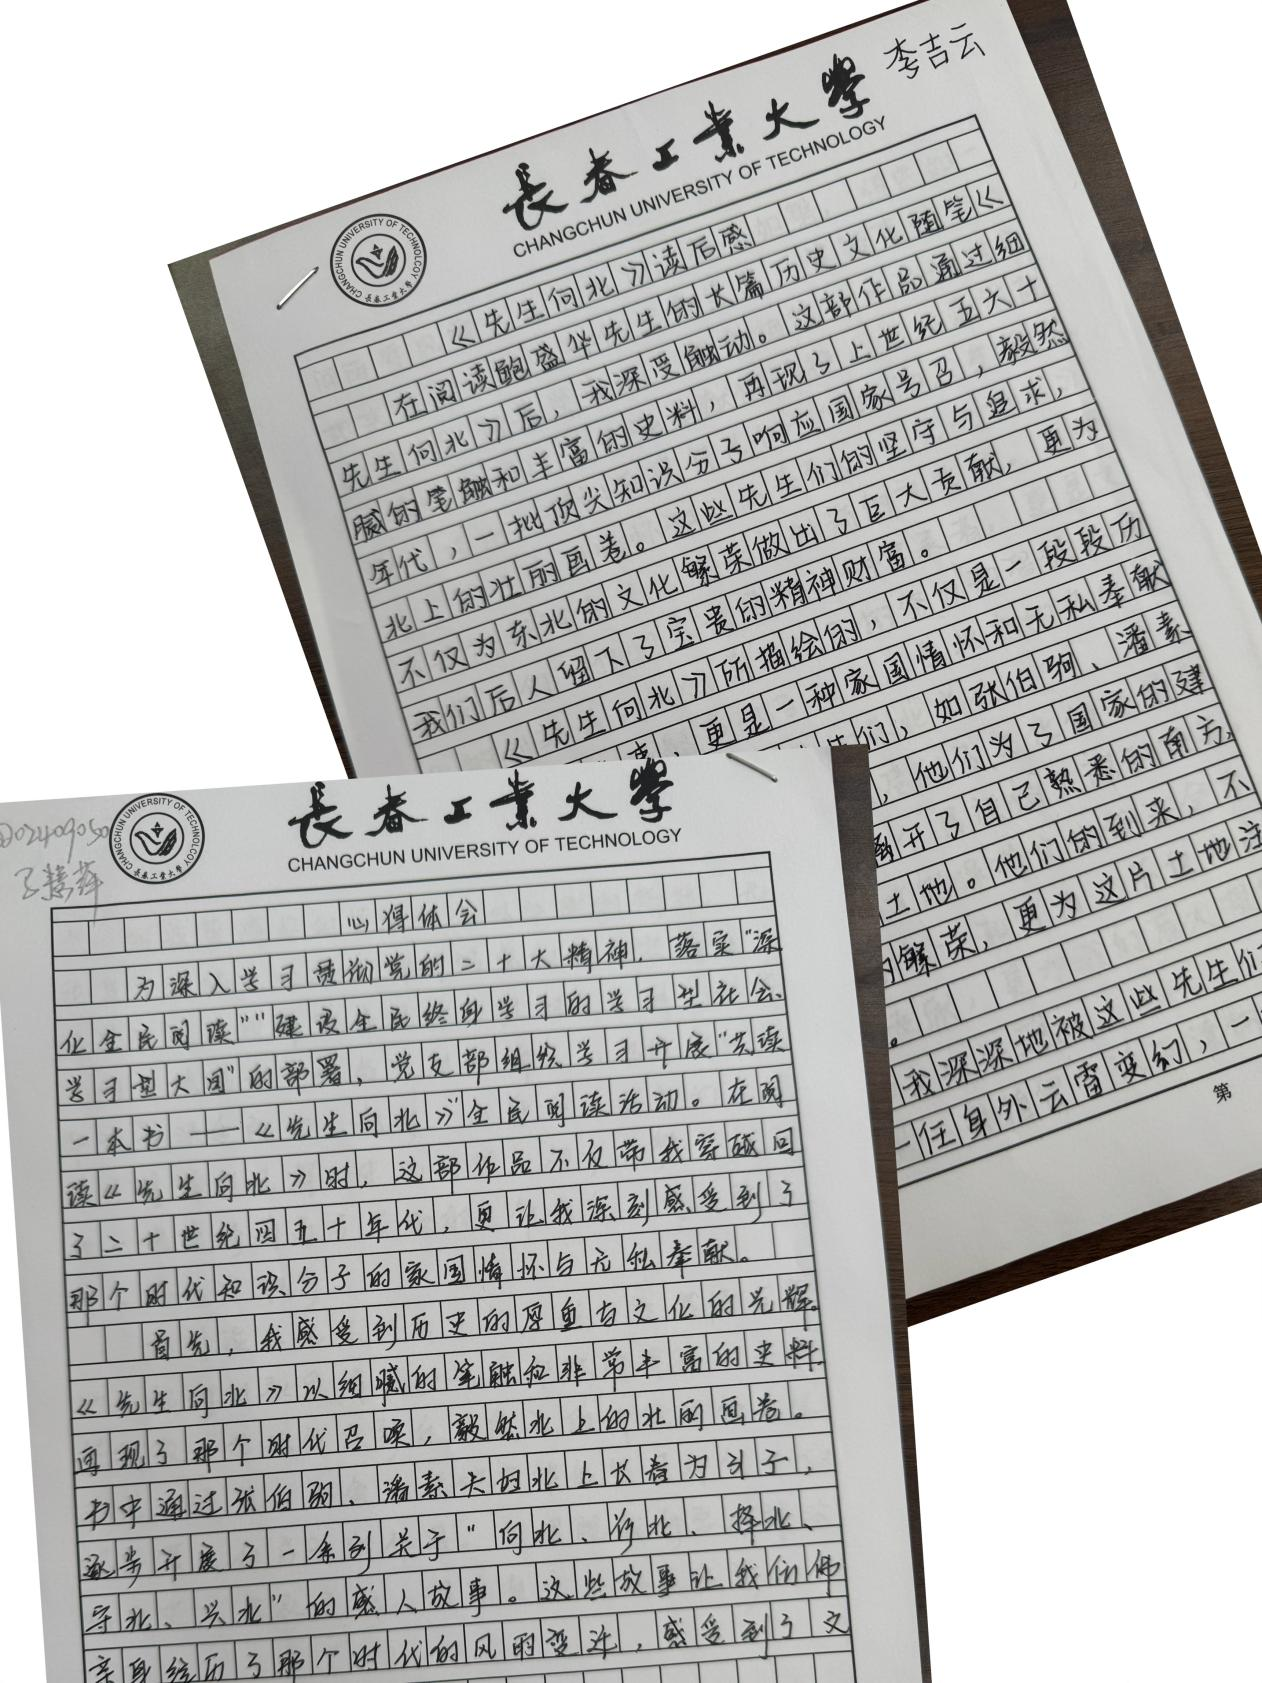 李吉云
長春工業大學
CHANGCHUN UNIVERSITY OF TECHNOLOGY
《先生向北》读后感
在阅读鲍盛华先生的长篇历史文化随笔《
先生向北》后，我深受触动。这部作品通过细
腻的笔触和丰富的史料，再现了上世纪五六十
年代，一批顶尖知识分子响应国家号召，毅然
北上的壮丽画卷。这些先生们的坚守与追求，
不仅为东北的文化繁荣做出了巨大贡献，更为
我们后人留下了宝贵的精神财富。
《先生向北》所描绘的，不仅是一段段历
事，更是一种家国情怀和无私奉献
生们，如张伯驹、潘素
，他们为了国家的建
离开了自己熟悉的南方，
土地。他们的到来，不
繁荣，更为这片土地注
。
我深深地被这些先生们
任身外云雷变幻，一
第
長春工業大學
CHANGCHUN UNIVERSITY OF TECHNOLOGY
心得体会
为深入学习贯彻党的二十大精神，落实“深
化全民阅读”“建设全民终身学习的学习型社会、
学习型大国”的部署，党支部组织学习开展“共读
一本书——《先生向北》”全民阅读活动。在阅
读《先生向北》时，这部作品不仅带我穿越回
了二十世纪四五十年代，更让我深刻感受到了
那个时代知识分子的家国情怀与无私奉献。
首先，我感受到历史的厚重与文化的光辉。
《先生向北》以细腻的笔触和非常丰富的史料
再现了那个时代召唤，毅然北上的壮丽画卷。
书中通过张伯驹、潘素夫妇北上长春为引子，
逐步开展了一系列关于“向北、行北、择北、
守北、兴北”的感人故事。这些故事让我们仿佛
亲身经历了那个时代的风雨变迁，感受到了文